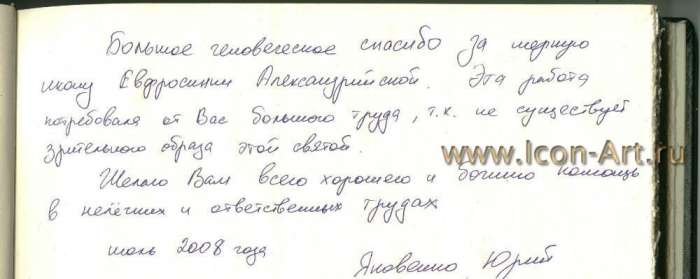 Большое человеческое спасибо за мерную
икону Евфросинии Александрийской. Эта работа
потребовала от Вас большого труда, т.к. не существует
зрительного образа этой святой.
www.Icon-Art.ru
Желаю Вам всего хорошего и божию помощь
в нелёгких и ответственных трудах
июль 2008 года
Яковенко Юрий